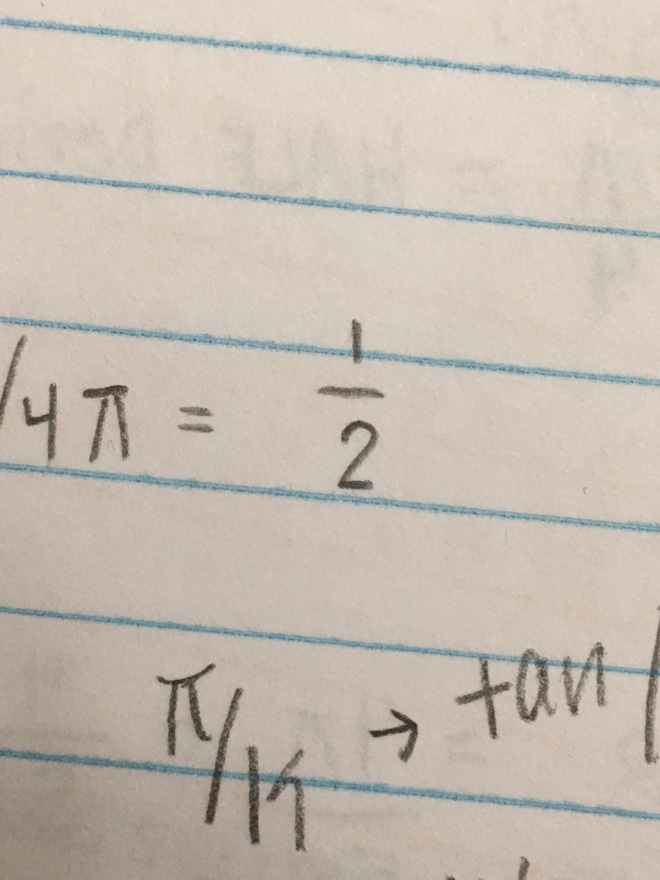 /4π = 1/2
π/K → tan(